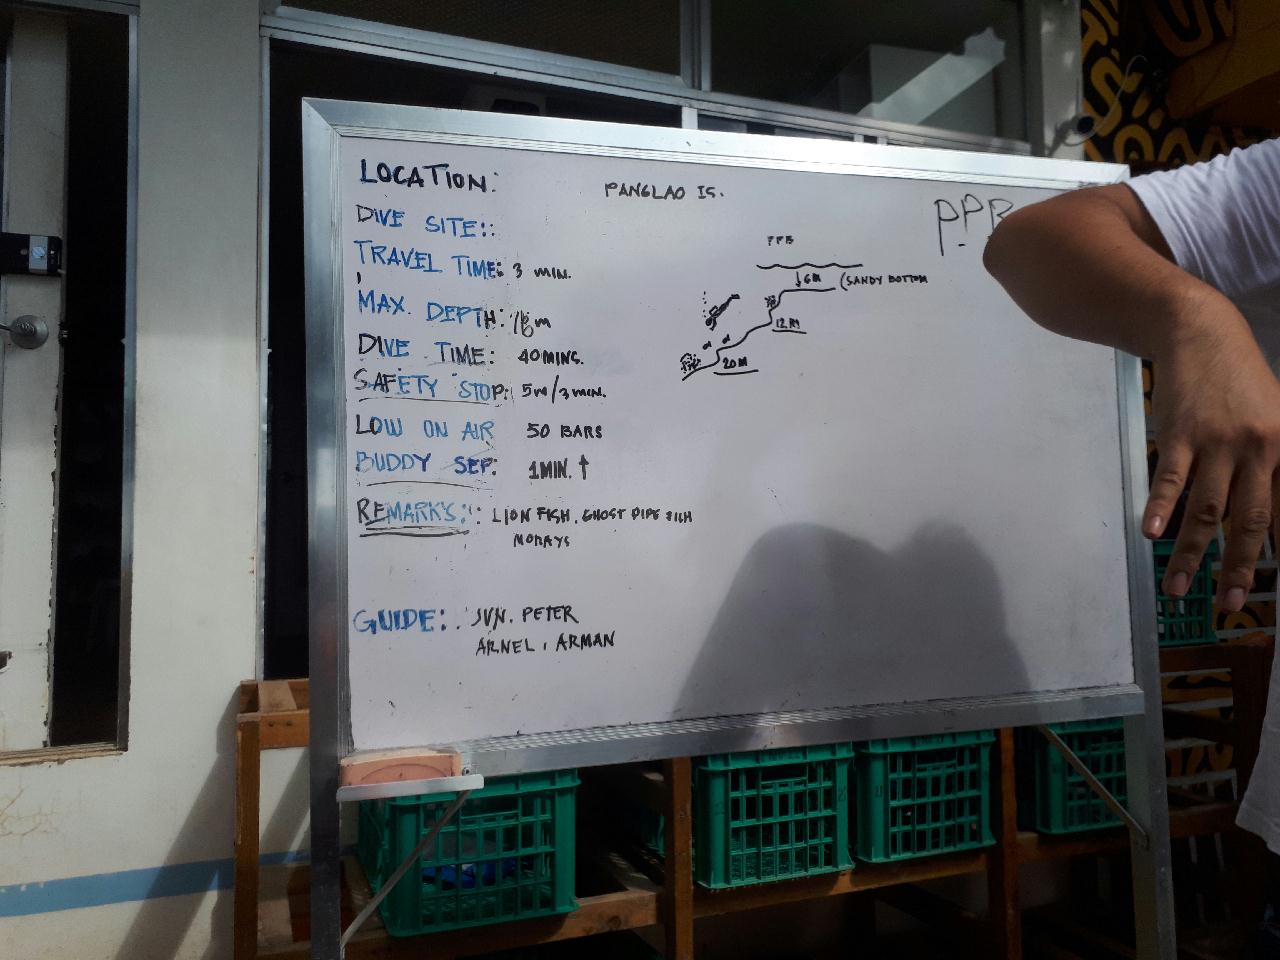 LOCATION: PANGLAO IS.
DIVE SITE::
TRAVEL TIME: 3 MIN.
MAX. DEPTH: 18m
DIVE TIME: 40MINS.
SAFETY STOP: 5m/3MIN.
LOW ON AIR 50 BARS
BUDDY SEP: 1MIN.↑
REMARK'S:: LION FISH, GHOST PIPE FISH
MORAYS
GUIDE: JUN. PETER
ARNEL, ARMAN
PPB
PPB
↓6M (SANDY BOTTOM
12M
20M